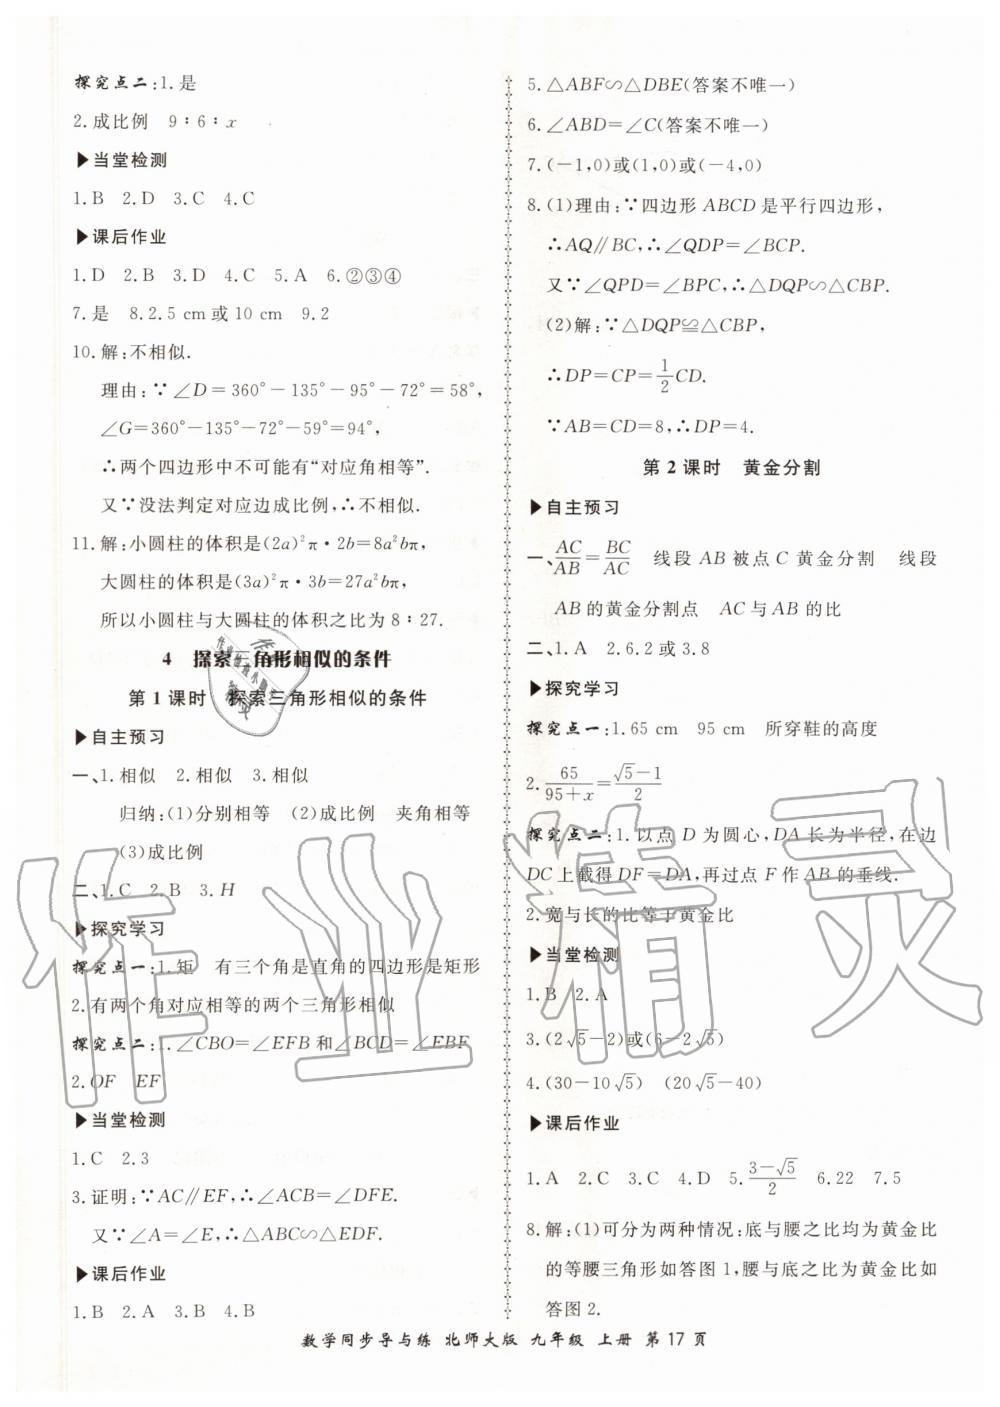 探究点二:1.是
2.成比例 9∶6∶x
▶当堂检测
1.B 2.D 3.C 4.C
▶课后作业
1.D 2.B 3.D 4.C 5.A 6.②③④
7.是 8.2.5 cm或10 cm 9.2
10.解:不相似.
理由:∵∠D=360°-135°-95°-72°=58°,
∠G=360°-135°-72°-59°=94°,
∴两个四边形中不可能有“对应角相等”.
又∵没法判定对应边成比例,∴不相似.
11.解:小圆柱的体积是(2a)²π·2b=8a²bπ,
大圆柱的体积是(3a)²π·3b=27a²bπ,
所以小圆柱与大圆柱的体积之比为8∶27.
4 探索三角形相似的条件
第1课时 探索三角形相似的条件
▶自主预习
一、1.相似 2.相似 3.相似
归纳:(1)分别相等 (2)成比例 夹角相等
(3)成比例
二、1.C 2.B 3.H
▶探究学习
探究点一:1.矩 有三个角是直角的四边形是矩形
2.有两个角对应相等的两个三角形相似
探究点二:1.∠CBO=∠EFB和∠BCD=∠EBF
2.OF EF
▶当堂检测
1.C 2.3
3.证明:∵AC∥EF,∴∠ACB=∠DFE.
又∵∠A=∠E,∴△ABC∽△EDF.
▶课后作业
1.B 2.A 3.B 4.B
5.△ABF∽△DBE(答案不唯一)
6.∠ABD=∠C(答案不唯一)
7.(-1,0)或(1,0)或(-4,0)
8.(1)理由:∵四边形ABCD是平行四边形,
∴AQ∥BC,∴∠QDP=∠BCP.
又∵∠QPD=∠BPC,∴△DQP∽△CBP.
(2)解:∵△DQP≌△CBP,
∴DP=CP=1/2CD.
∵AB=CD=8,∴DP=4.
第2课时 黄金分割
▶自主预习
一、AC/AB=BC/AC 线段AB被点C黄金分割 线段
AB的黄金分割点 AC与AB的比
二、1.A 2.6.2或3.8
▶探究学习
探究点一:1.65 cm 95 cm 所穿鞋的高度
2.65/(95+x)=(√5-1)/2
探究点二:1.以点D为圆心,DA长为半径,在边
DC上截得DF=DA,再过点F作AB的垂线.
2.宽与长的比等于黄金比
▶当堂检测
1.B 2.A
3.(2√5-2)或(6-2√5)
4.(30-10√5) (20√5-40)
▶课后作业
1.A 2.C 3.C 4.D 5.(3-√5)/2 6.22 7.5
8.解:(1)可分为两种情况:底与腰之比均为黄金比
的等腰三角形如答图1,腰与底之比为黄金比如
答图2.
数学同步导与练 北师大版 九年级 上册 第17页
作业精灵